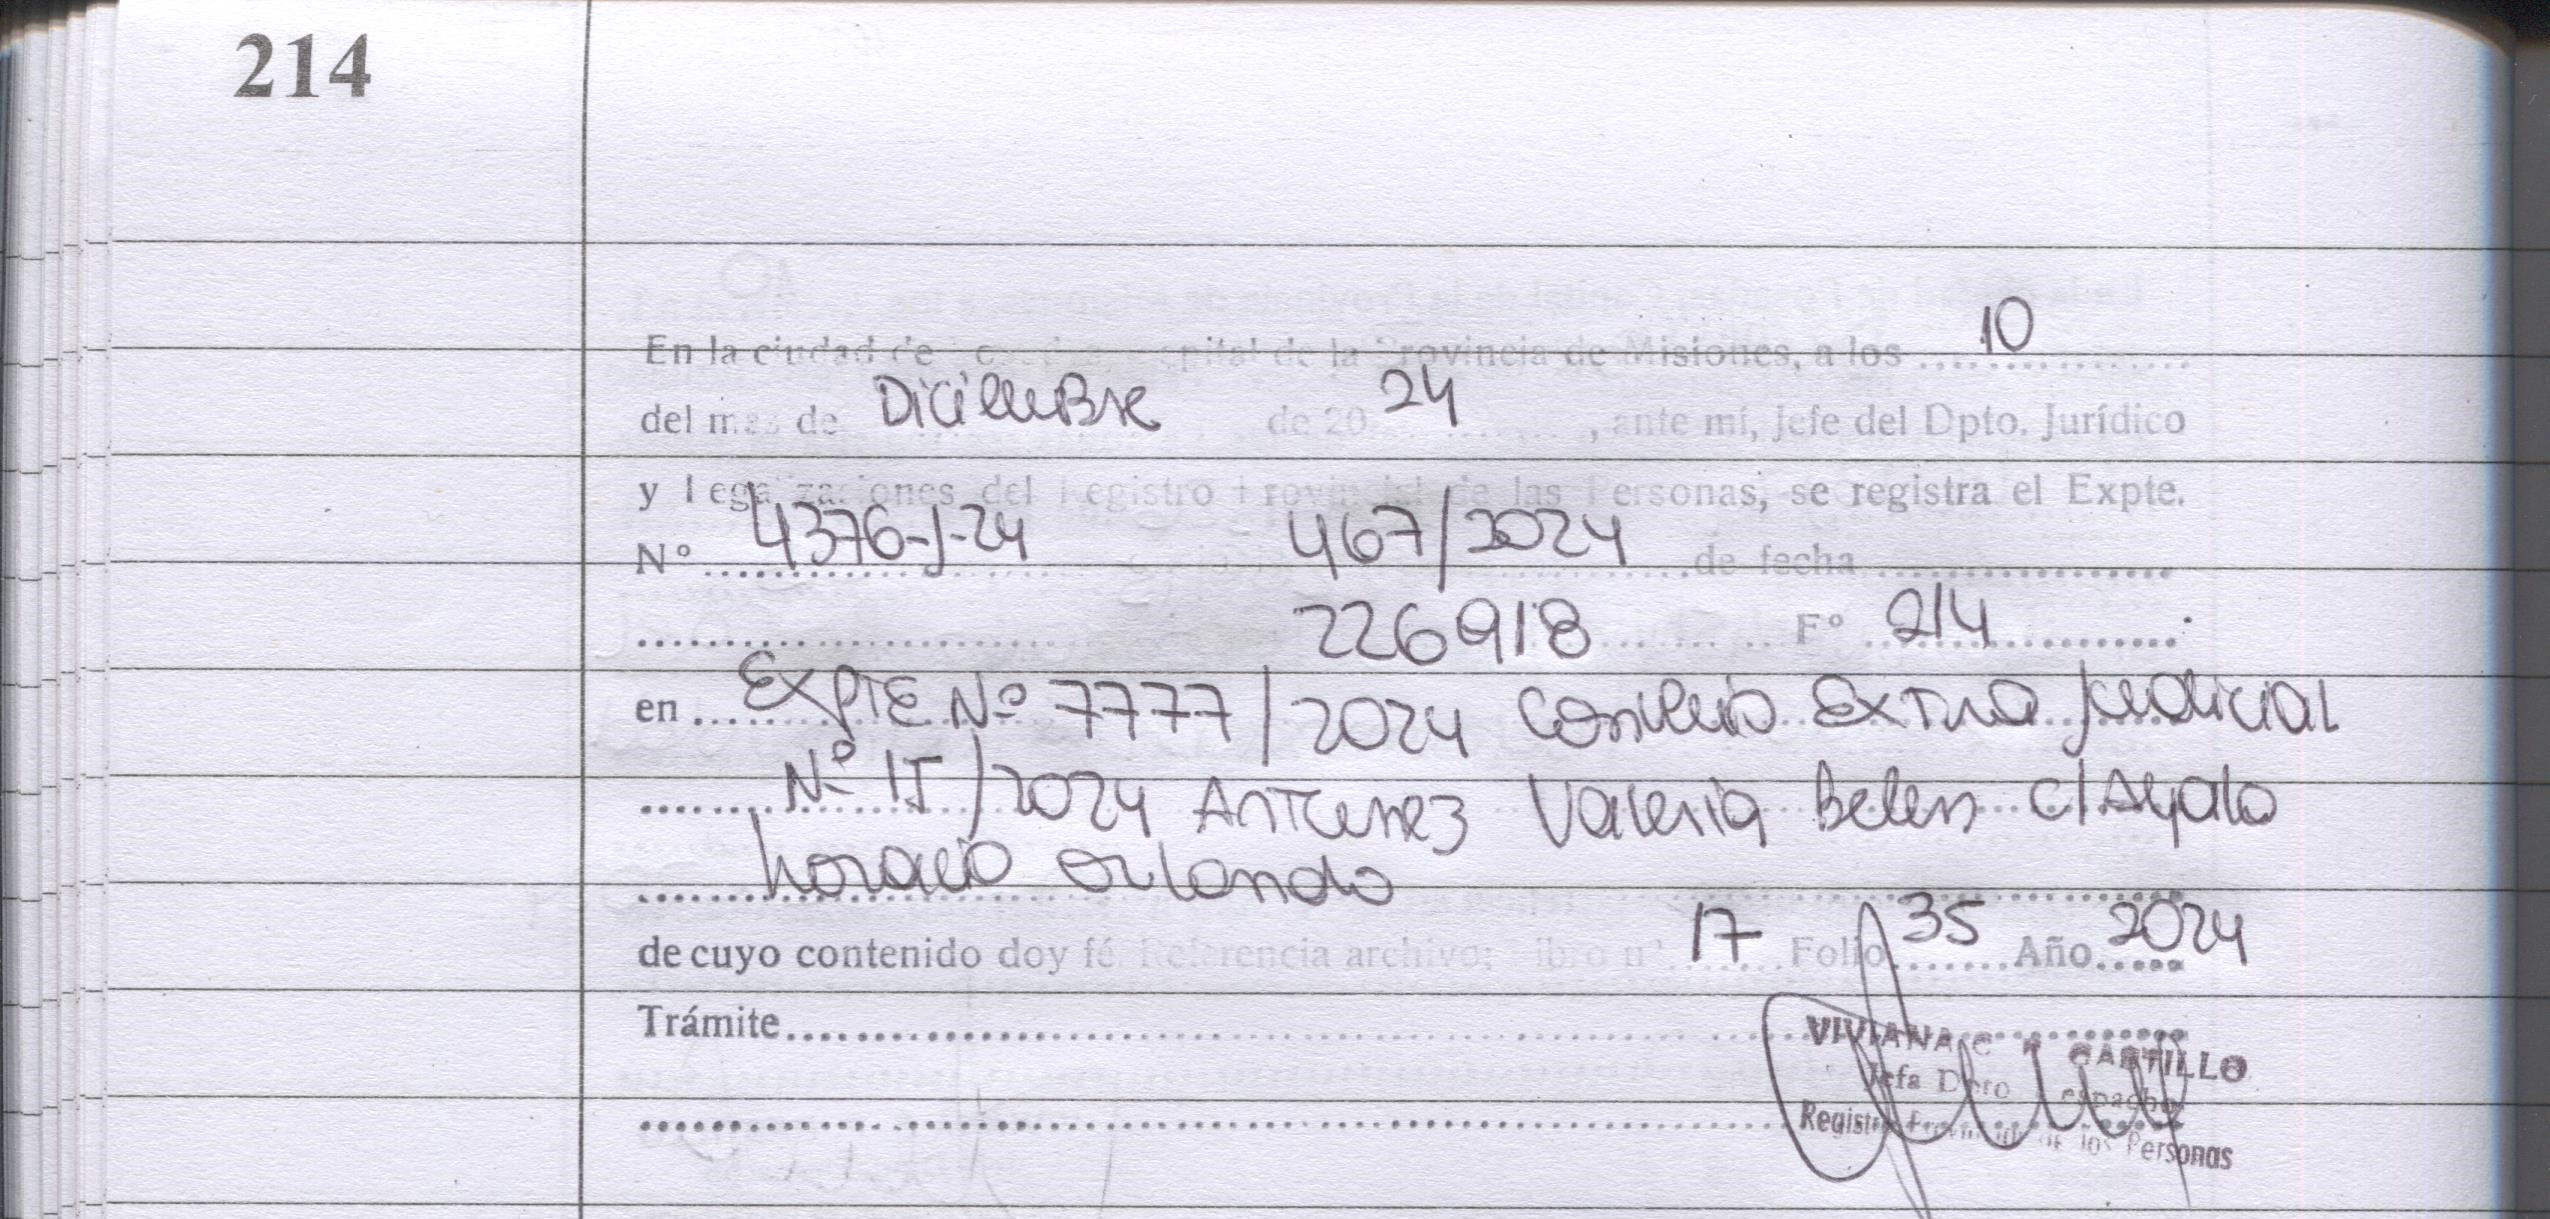 214
En la ciudad de pital de la Provincia de Misiones, a los 10
del mes de DiciemBre de 20 24, ante mí, Jefe del Dpto. Jurídico
y Legalizaciones del Registro Provincial de las Personas, se registra el Expte.
N° 4376-J-24 467/2024 de fecha
226918 F° 214
en ExpTE Nº 7777/2024 Convenio ExTra judicial
Nº 15/2024 AnTunez Valeria Belen c/ Ayala
horacio orlando
de cuyo contenido doy fé. Referencia archivo: Libro nº 17 Folio 35 Año 2024
Trámite
VIVIANA C CASTILLO
Jefa Dpto Despacho
Registro Provincial de las Personas